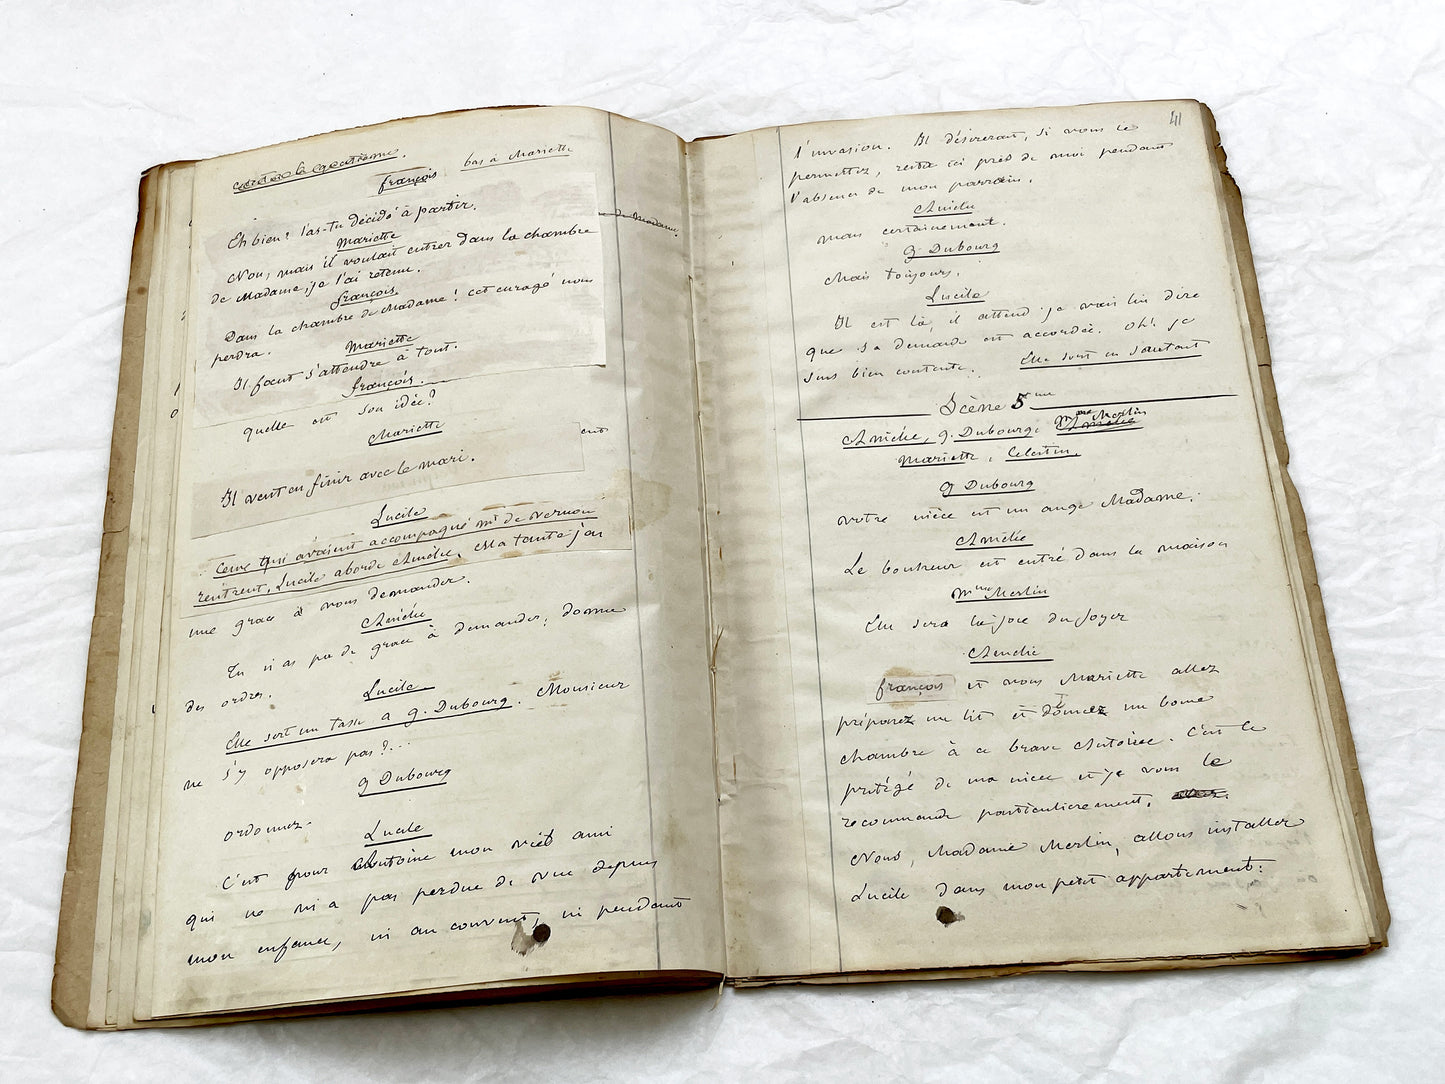 François. bas à Mariette
Eh bien? l'as-tu décidé à partir.
Mariette
Non, mais il voulait entrer dans la chambre
de Madame, je l'ai retenu.
François.
Dans la chambre de Madame! cet enragé nous
perdra.
Mariette
Il faut s'attendre à tout.
François.
Quelle est son idée?
Mariette
Il veut en finir avec le mari.
Lucile
Ceux qui avaient accompagné Mr de Vernon
rentrent, Lucile aborde Amélie. Ma tante j'ai
une grace à vous demander.
Amélie
Tu n'as pas de grace à demander, donne
des ordres.
Lucile
Elle sort un tasse a g. Dubourg. Monsieur
ne s'y opposera pas?...
g Dubourg
ordonnez.
Lucile
C'est pour Antoine mon vieil ami
qui ne m'a pas perdue de vue depuis
mon enfance, ni au couvent, ni pendant
41
l'invasion. Il désirerait, si vous le
permettez, rester ici près de moi pendant
l'absence de mon parrain.
Amélie
mais certainement.
g Dubourg
Mais toujours.
Lucile
Il est là, il attend. je vais lui dire
que sa demande est accordée. Oh! je
suis bien contente. Elle sort en sautant
Scène 5ème
Amélie, g. Dubourg, Mme Merlin
Mariette, Celestin.
g Dubourg
votre nièce est un ange Madame.
Amélie
Le bonheur est entré dans la maison
Mme Merlin
Elle sera la joie du foyer
Amélie
François et vous Mariette allez
préparez un lit et donnez une bonne
chambre à ce brave Antoine. C'est le
protégé de ma nièce et je vous le
recommande particulièrement.
Nous, Madame Merlin, allons installer
Lucile dans mon petit appartement.